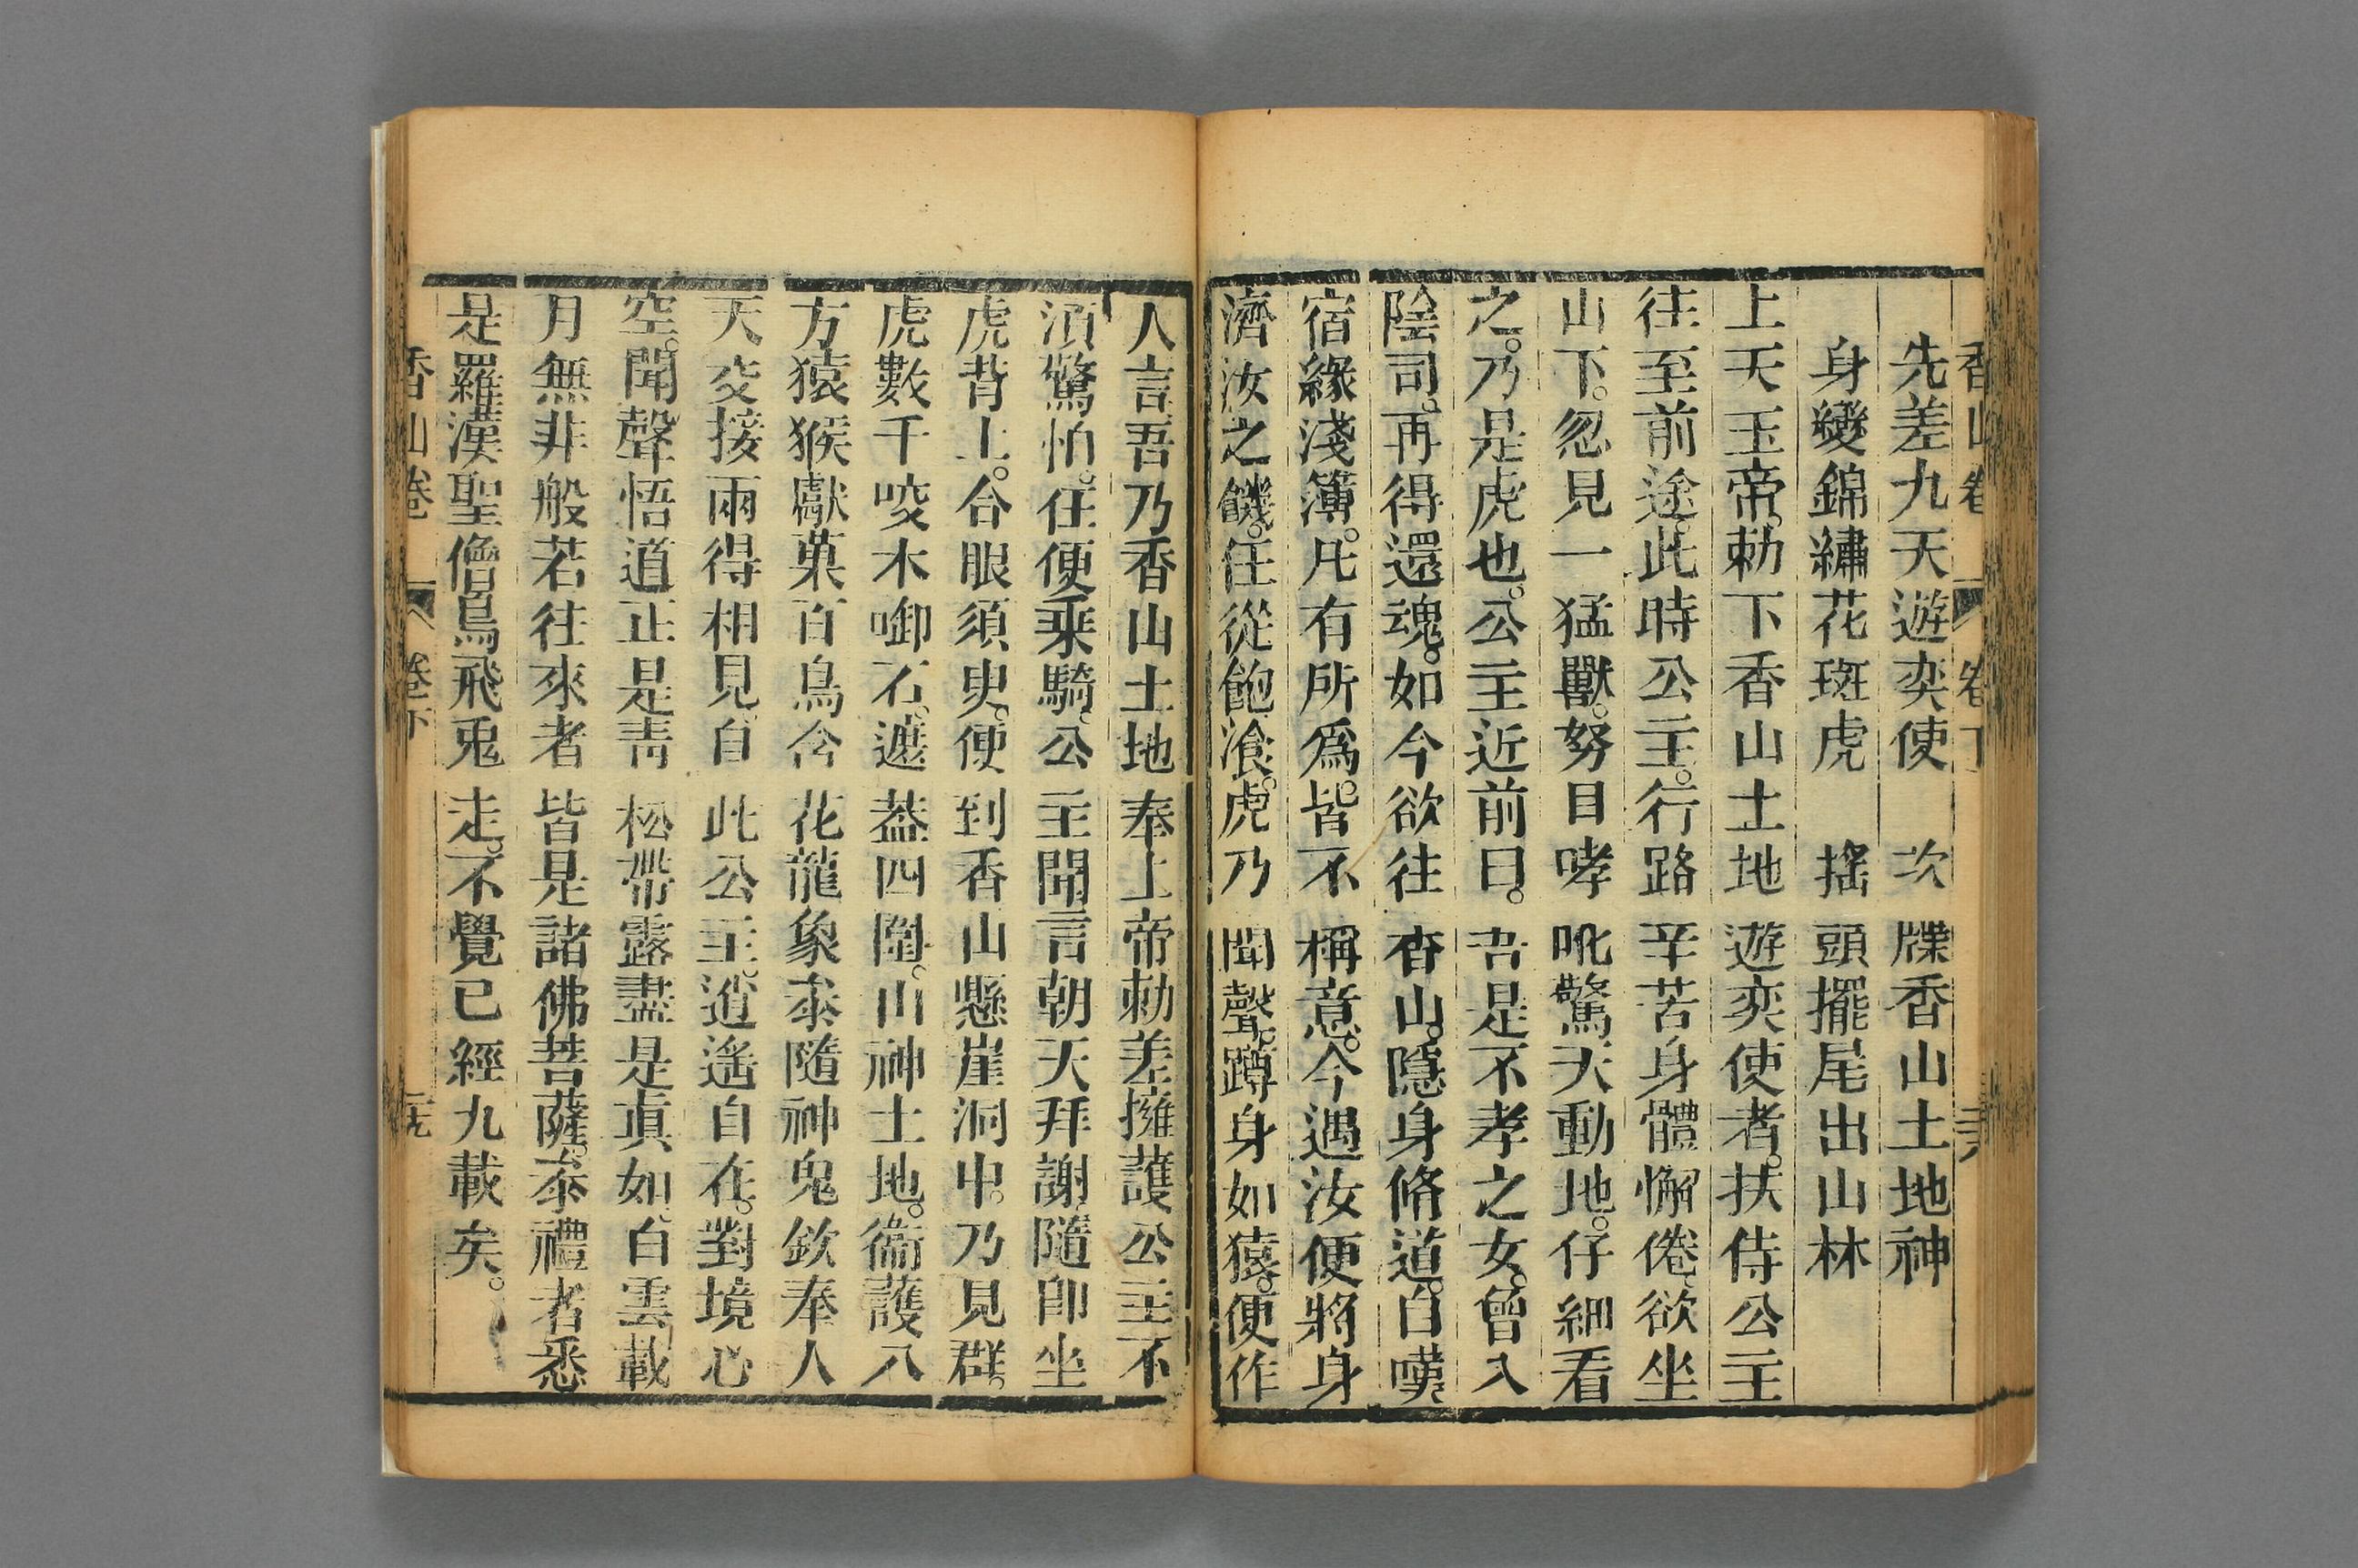 香山卷 卷下 三八
先差九天遊奕使 次牒香山土地神
身變錦繡花斑虎 搖頭擺尾出山林
上天玉帝。勅下香山土地遊奕使者。扶侍公主
往至前途。此時公主。行路辛苦身體懈倦。欲坐
山下。忽見一猛獸。努目哮吼驚天動地。仔細看
之。乃是虎也。公主近前曰。吾是不孝之女。曾入
陰司。再得還魂。如今欲往香山。隱身脩道。自嘆
宿緣淺薄。凡有所爲。皆不稱意。今遇汝便將身
濟汝之饑。任從飽飡。虎乃聞聲。蹲身如猿。便作
人言吾乃香山土地奉上帝勅差擁護公主不
須驚怕。任便乘騎。公主聞言朝天拜謝。隨卽坐
虎背上。合眼須臾。便到香山懸崖洞中。乃見群。
虎數千咬木啣石。遮葢四圍。山神土地。衞護八
方猿猴獻菓百鳥含花龍象叅隨神鬼欽奉人
天交接兩得相見。自此公主。逍遙自在。對境心
空。聞聲悟道正是靑松帶露盡是眞如。白雲載
月無非般若往來者皆是諸佛菩薩。叅禮者悉
是羅漢聖僧鳥飛兎走。不覺已經九載矣。
香山卷 卷下 三九